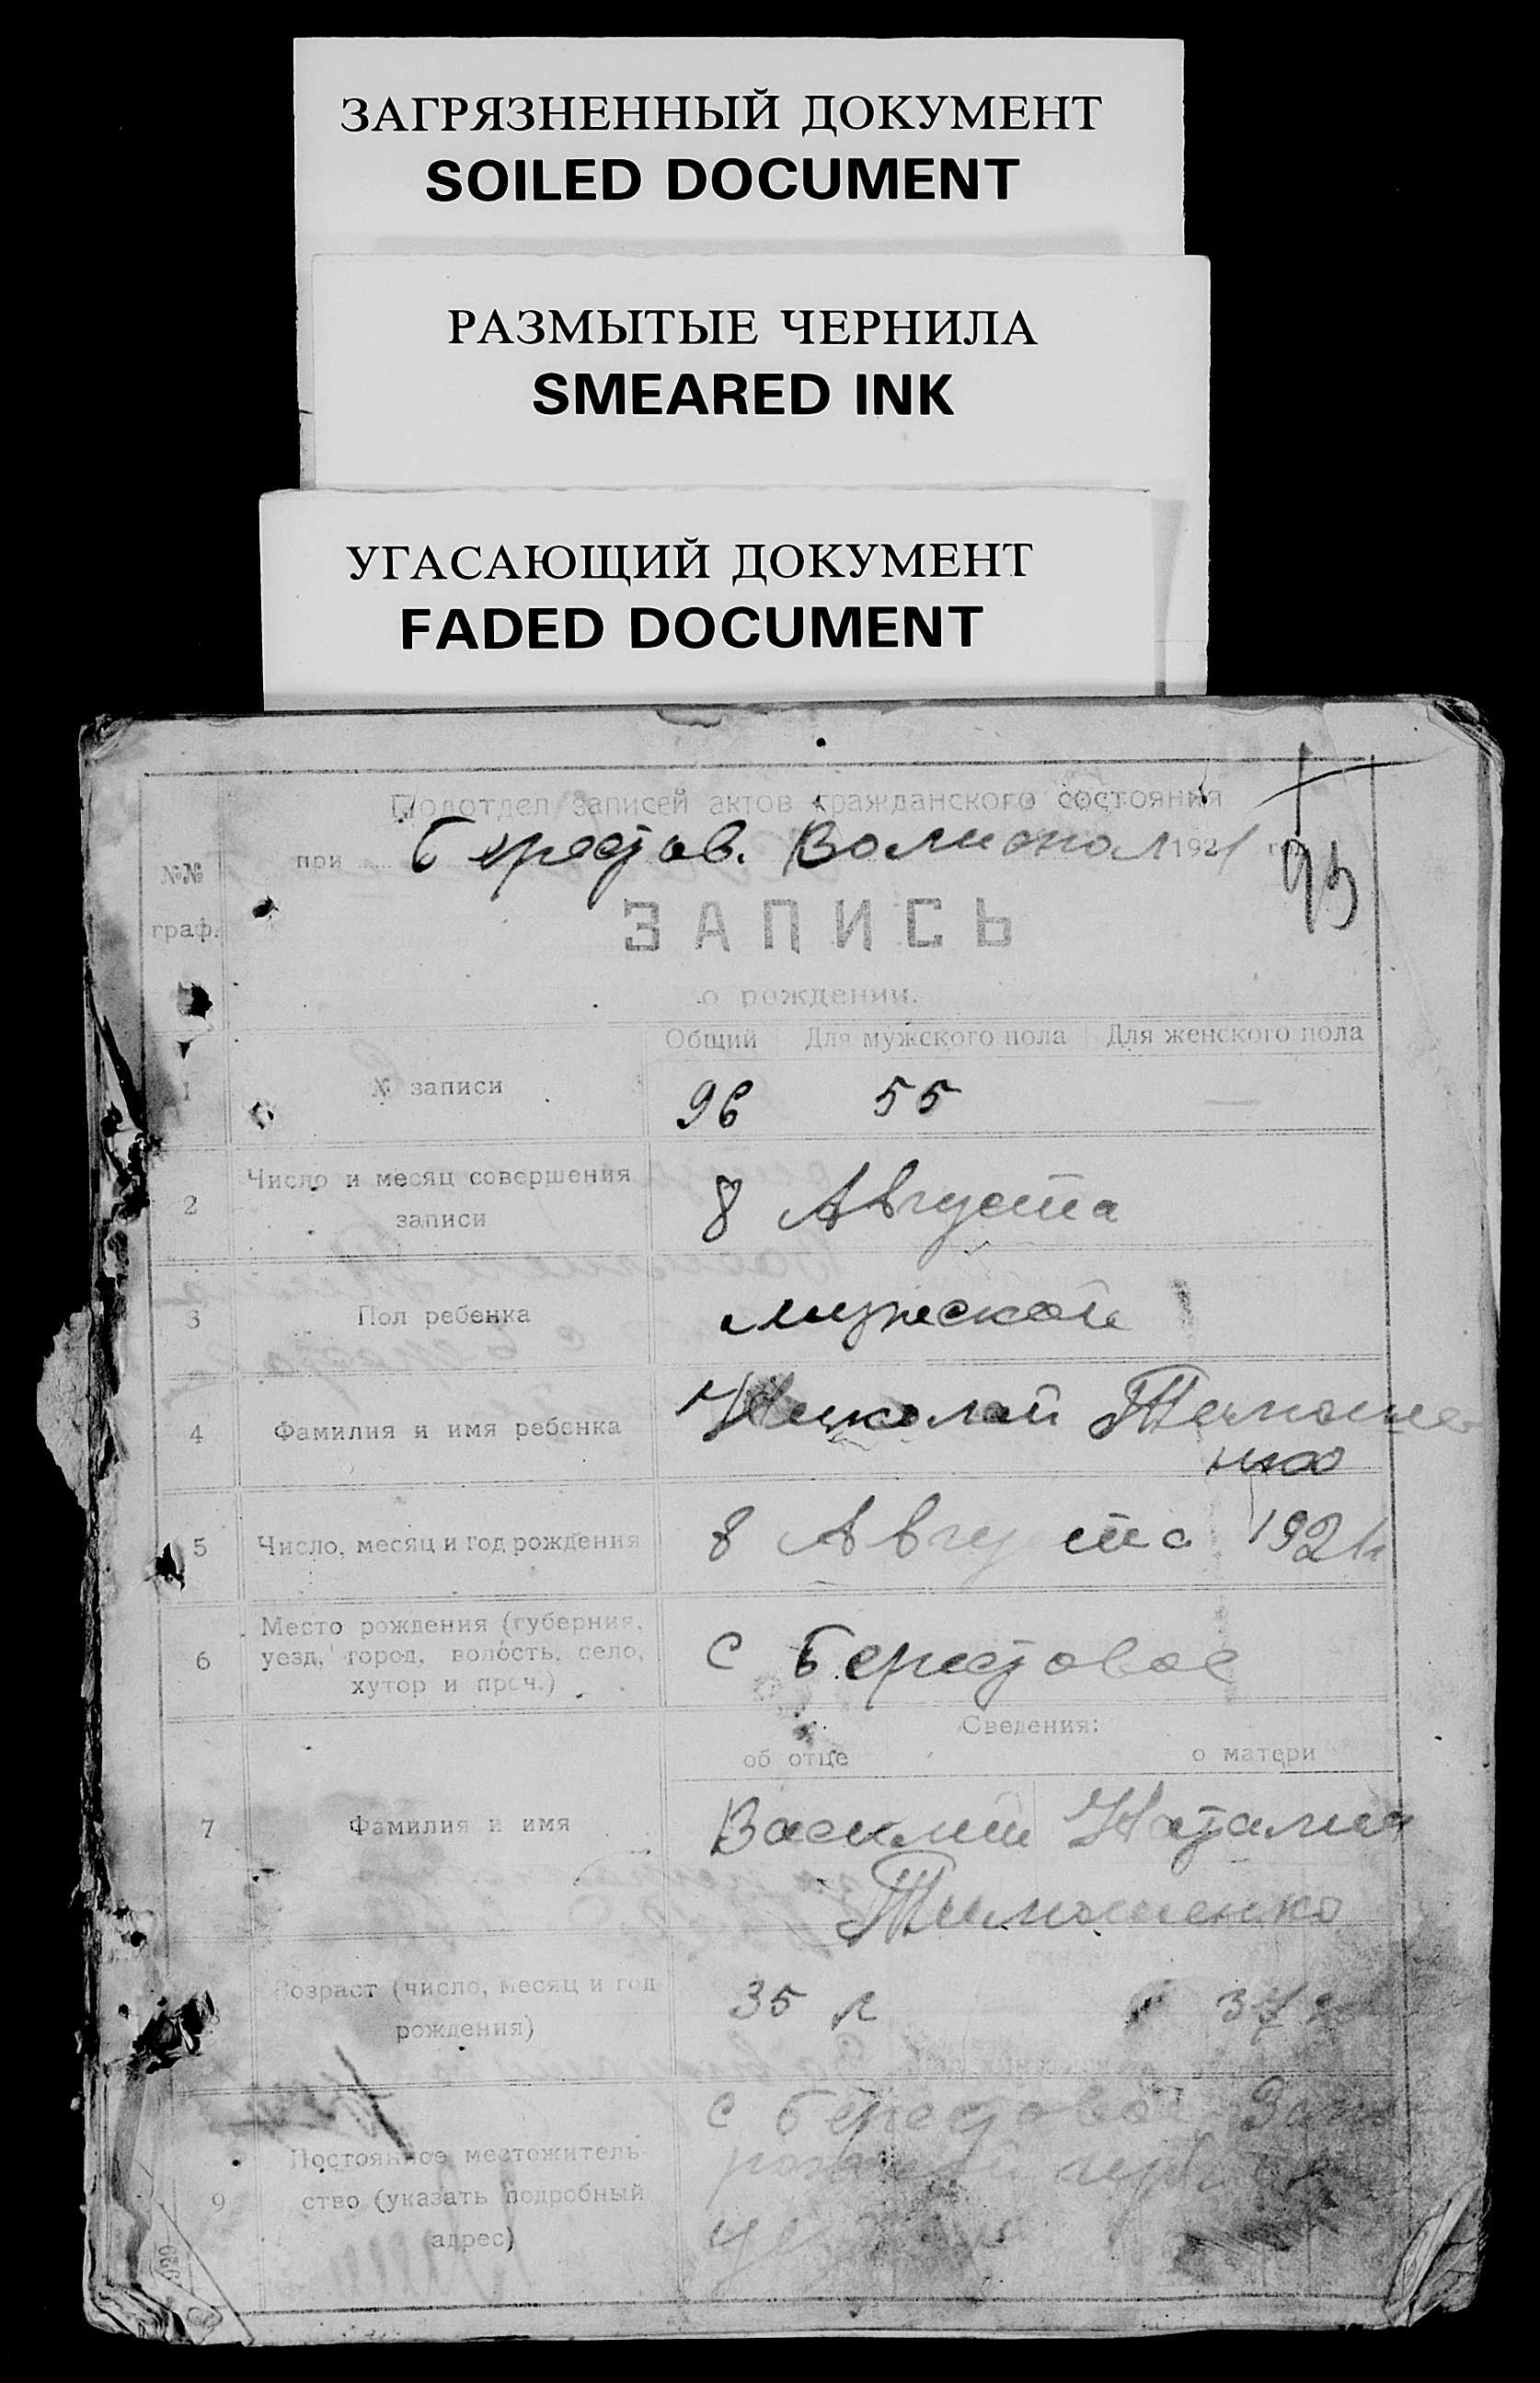 ЗАГРЯЗНЕННЫЙ ДОКУМЕНТ
SOILED DOCUMENT
РАЗМЫТЫЕ ЧЕРНИЛА
SMEARED INK
УГАСАЮЩИЙ ДОКУМЕНТ
FADED DOCUMENT
Подотдел записей актов гражданского состояния
при Берестов. Волисполк 1921 г.
95
№№
граф.
ЗАПИСЬ
о рождении.
Общий Для мужского пола Для женского пола
1 № записи 96 55 —
2 Число и месяц совершения
записи 8 Августа
3 Пол ребенка мужской
4 Фамилия и имя ребенка Николай Тимоше
нко
5 Число, месяц и год рождения 8 Августа 1921
6 Место рождения (губерния,
уезд, город, волость, село,
хутор и проч.) с Берестовое
Сведения:
об отце о матери
7 Фамилия и имя Василий Наталия
Тимошенко
Возраст (число, месяц и год
рождения) 35 л
с Берестовое
9 Постоянное местожитель-
ство (указать подробный
адрес)